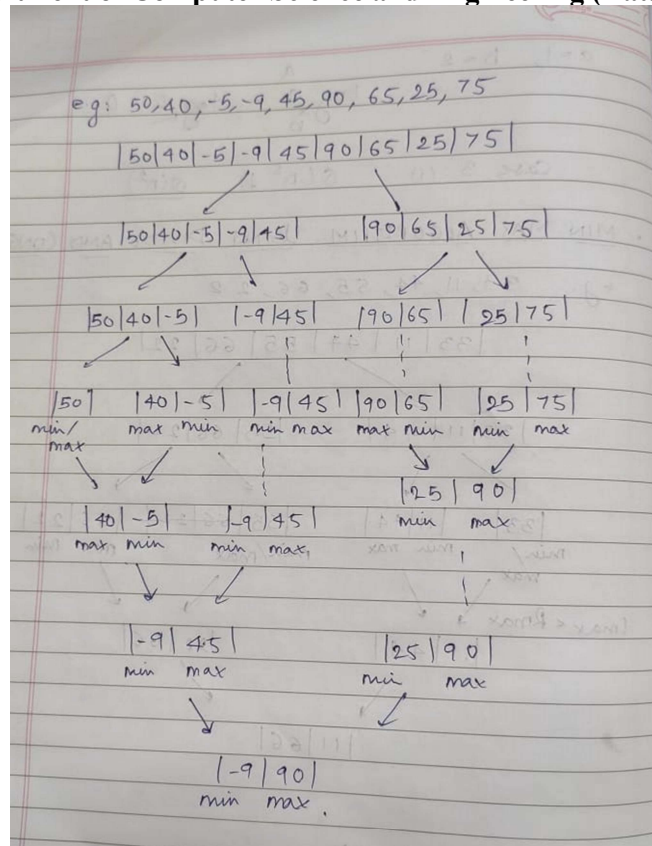 eg: 50, 40, -5, -9, 45, 90, 65, 25, 75
|50|40|-5|-9|45|90|65|25|75|
|50|40|-5|-9|45| |90|65|25|75|
|50|40|-5| |-9|45| |90|65| |25|75|
|50| |40|-5| |-9|45| |90|65| |25|75|
min/ max min min max max min min max
max
|25|90|
min max
|40|-5| |-9|45|
max min min max,
|-9|45| |25|90|
min max min max
|-9|90|
min max.